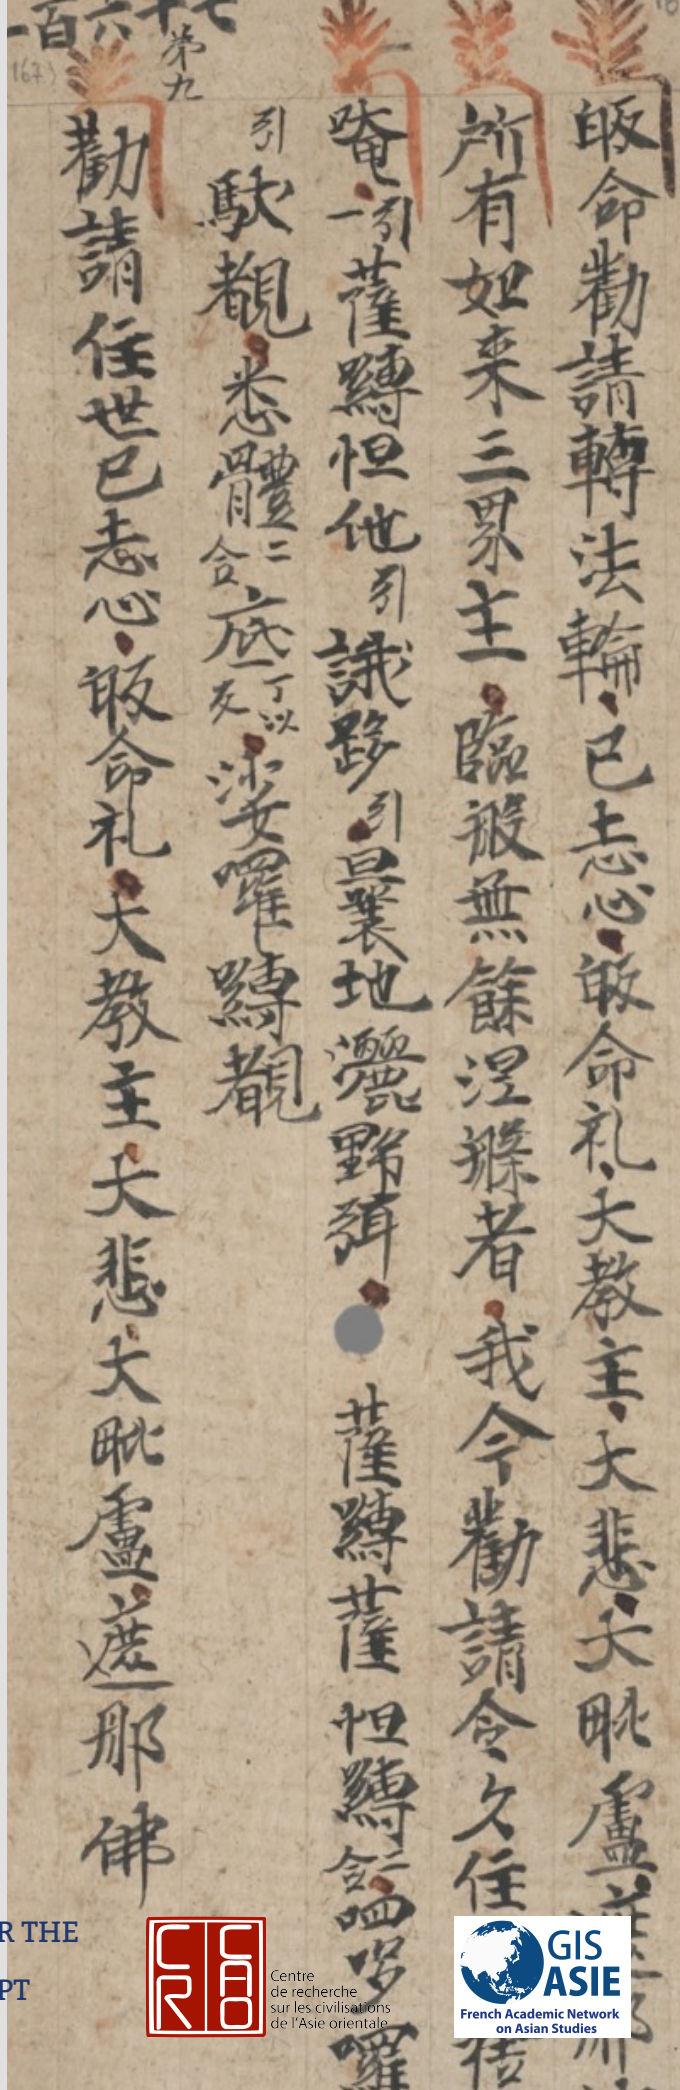 皈命勸請轉法輪已志心皈命礼大教主大悲大毗盧遮那
所有如来三界主臨般無餘涅槃者我今勸請令久住
唵一引薩嚩怛他引誐跢引曩地灑野弭薩嚩薩怛嚩二合呬哆囉
引駄覩悉體體二合底丁以反婆囉嚩覩
勸請住世已志心皈命礼大教主大悲大毗盧遮那佛
一百六十七
第九
(167)
R THE
PT
CRCAO
Centre
de recherche
sur les civilisations
de l'Asie orientale
GIS
ASIE
French Academic Network
on Asian Studies